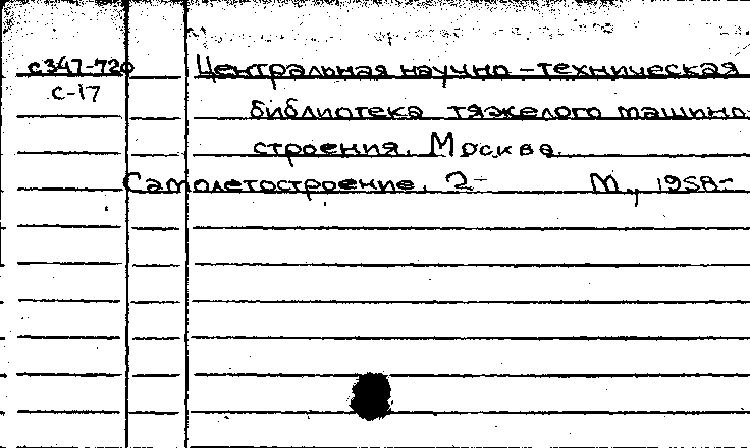 с347-720 Центральная научно-техническая
С-17 библиотека тяжелого машино-
строения. Москва.
Самолетостроение. 2- М., 1958-